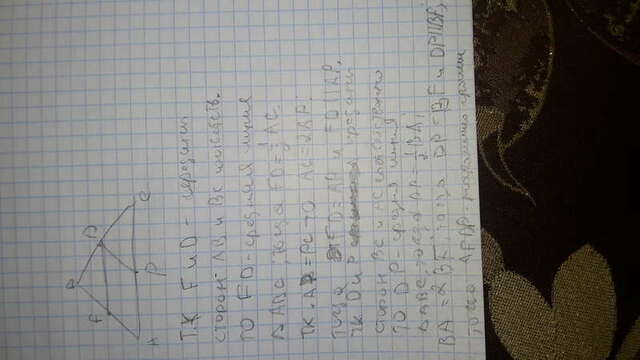 B
F
D
A
P
C
Т.К F и D - середины
сторон AB и BC соответств.
то FD - средняя линия
∆ ABC, тогда FD = ½ AC.
Т.К. AP = PC то AC = 2AP.
тогда FD = AP и FD || AP.
Т.К. D и P середины
сторон BC и AC соответственно
то DP - средняя линия
∆ ABC, тогда DP = ½ BA,
BA = 2BF, тогда DP = BF и DP || BF,
тогда AFDP - параллелограмм